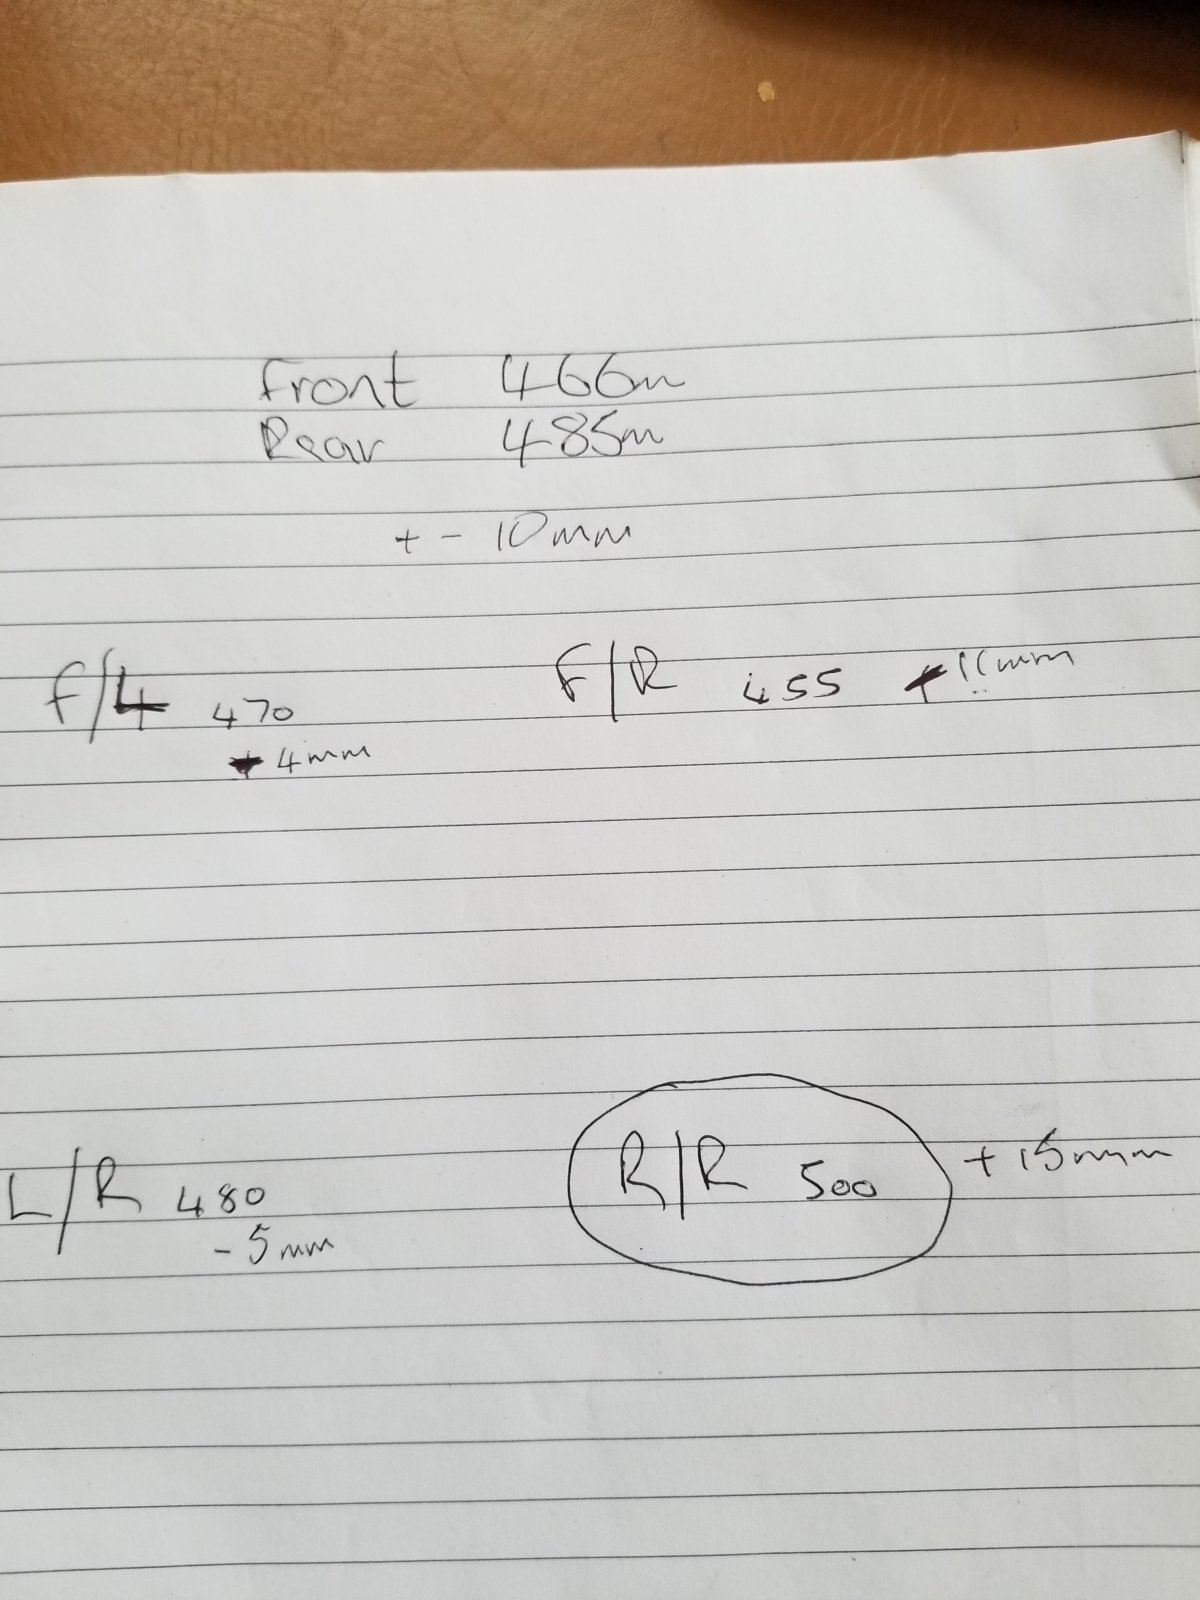 Front 466m
Rear 485m
+ - 10mm
F/L 470
+ 4mm
F/R 455 - 11mm
L/R 480
- 5mm
R/R 500 + 15mm